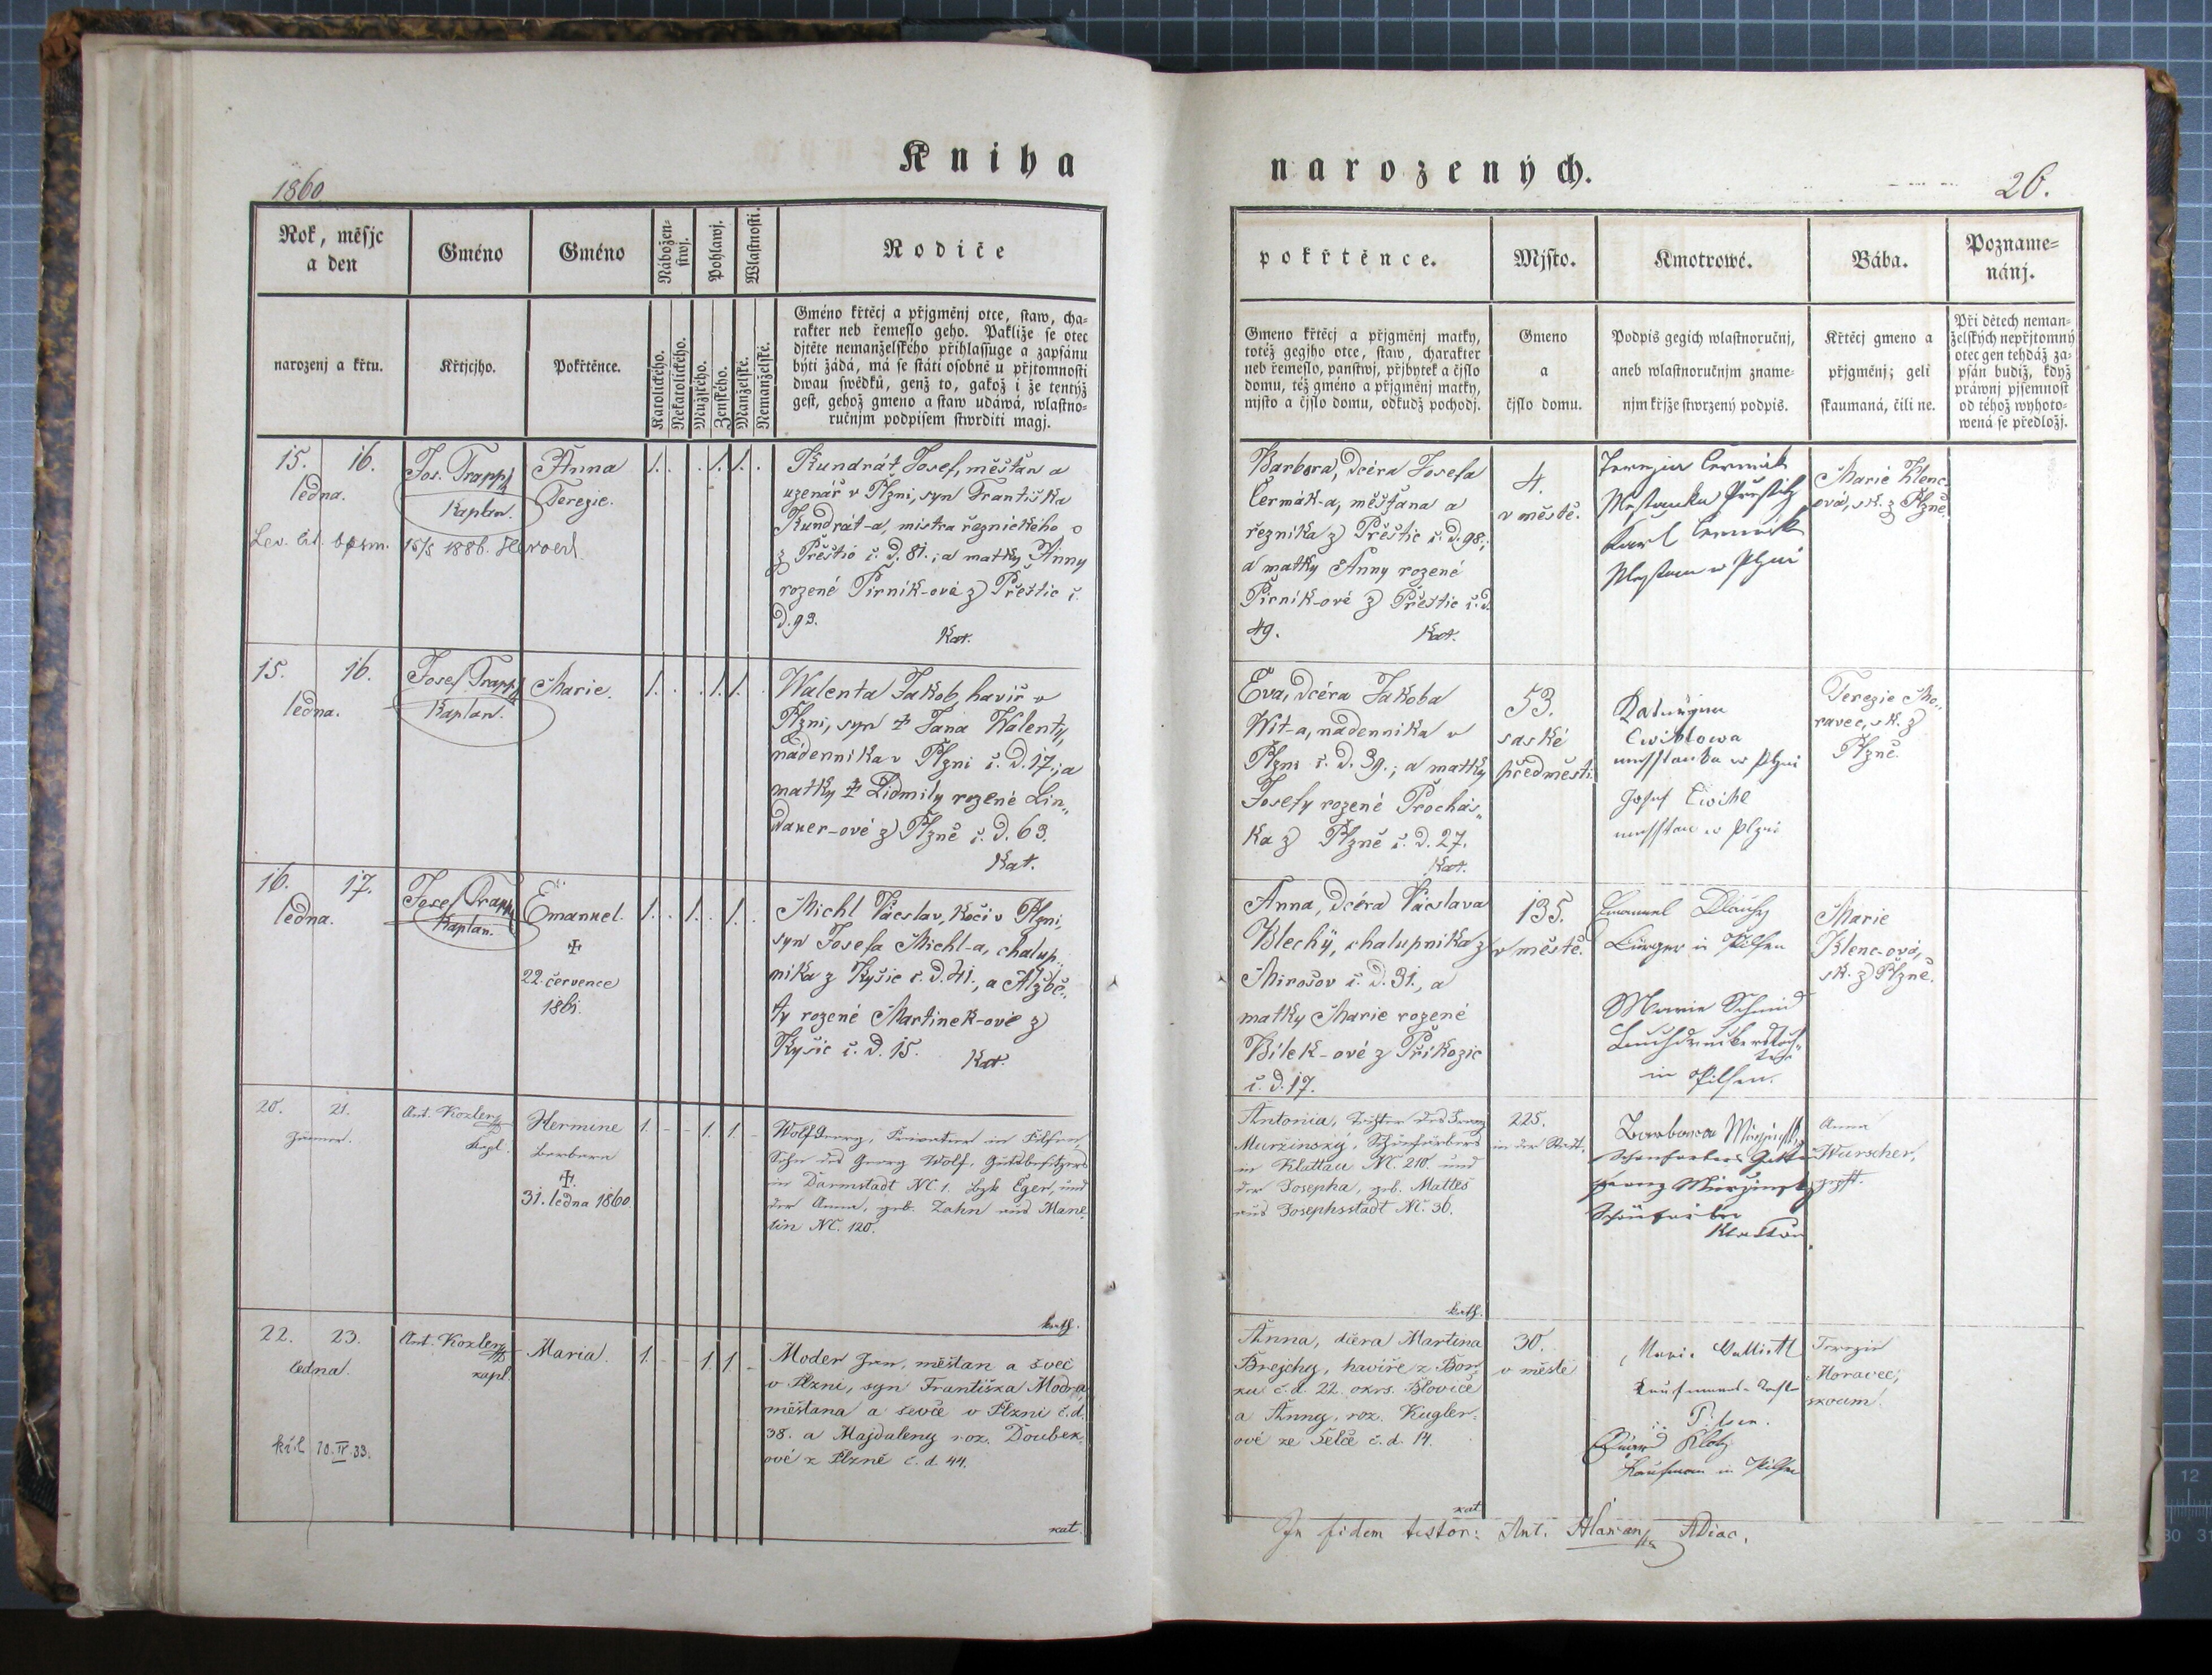 1860
Kniha
narozených.
26.
Rok, měsjc
a den
Gméno
Gméno
Nábožen-
stwj.
Pohlawj.
Wlastnosti.
Rodiče
pokřtěnce.
Mjsto.
Kmotrowé.
Bába.
Pozname-
nánj.
narozenj a křtu.
Křtjcjho.
Pokřtěnce.
Katolického.
Nekatolického.
Mužského.
Ženského.
Manželské.
Nemanželské.
Gméno křtěcj a přjgměnj otce, staw, cha-
rakter neb řemeslo geho. Pakliže se otec
djtěte nemanželského přihlassuge a zapsánu
býti žádá, má se státi osobně u přjtomnosti
dwau swědků, genž to, gakož i že tentýž
gest, gehož gmeno a staw udáwá, wlastno-
ručnjm podpisem stwrditi magj.
Gmeno křtěcj a přjgměnj matky,
totéž gegjho otce, staw, charakter
neb řemeslo, panstwj, přjbytek a čjslo
domu, též gméno a přjgměnj matky,
mjsto a čjslo domu, odkudž pochodj.
Gmeno
a
čjslo domu.
Podpis gegich wlastnoručnj,
aneb wlastnoručnjm zname-
njm křjže stwrzený podpis.
Křtěcj gmeno a
přjgměnj; geli
skaumaná, čili ne.
Při dětech neman-
želských nepřjtomný
otec gen tehdáž za-
psán budiž, když
práwnj pjsemnost
od téhož wyhoto-
wená se předložj.
15. 16.
ledna.
Jos. Trappl
Kaplan.
Anna
Terezie.
1. . . 1. 1. .
Kundrát Josef, měšťan a
uzenář v Plzni, syn Františka
Kundrát-a, mistra řeznického
z Přeštic č. d. 81.; a matky Anny
rozené Pirník-ové z Přeštic č.
d. 93.
Kat.
15/5 1886.
Barbora, dcéra Josefa
Čermák-a, měšťana a
řezníka z Přeštic č. d. 98.;
a matky Anny rozené
Pirník-ové z Přeštic č. d.
49. Kat.
4.
v městě.
Terezia Cermak
Karl Cermak
Marie Klenc-
ová, sk. z Plzně.
15. 16.
ledna.
Josef Trappl
Kaplan.
Marie.
1. . . 1. 1. .
Walenta Jakob, havíř v
Plzni, syn ‡ Jana Walenty,
nádenníka v Plzni č. d. 17.; a
matky ‡ Lidmily rozené Lin„
dauer-ové z Plzně č. d. 63.
Kat.
Eva, dcéra Jakoba
Wit-a, nádenníka v
Plzni č. d. 39.; a matky
Josefy rozené Procház„
ka z Plzně č. d. 27.
Kat.
53.
saské
předměstí.
Josef Cwikl
Terezie Mo„
ravec, sk. z
Plzně.
16. 17.
ledna.
Josef Trappl
Kaplan.
Emanuel.
✠
22. července
1861.
1. . 1. . 1. .
Michl Václav, kočí v Plzni,
syn Josefa Michl-a, chalup„
níka z Kyšic č. d. 41., a Alžbě„
ty rozené Martinek-ové z
Kyšic č. d. 15. Kat.
Anna, dcéra Václava
Blechý, chalupníka z
Mirošov č. d. 31., a
matky Marie rozené
Bílek-ové z Příkozic
č. d. 17.
135.
v městě.
Emanuel Dlauhy
Bürger in Pilsen
Marie Schmid
in Pilsen.
Marie
Klenc-ová,
sk. z Plzně.
20. 21.
Jänner.
Ant. Kozler
kapl.
Hermine
Barbara
✠.
31. ledna 1860.
1. - - 1. 1. -
Wolf Georg, Privatier in Pilsen,
Sohn des Georg Wolf, Gutsbesitzers
in Darmstadt NC. 1. Bzk Eger, und
der Anna, geb. Zahn aus Mane„
tin NC. 120.
kath.
Antonia, Tochter des Franz
Muržinský, Schönfärbers
in Klattau NC. 210. und
der Josepha, geb. Mattes
aus Josephsstadt NC. 36.
kath.
225.
in der Stadt.
Anna
Wurscher,
gepft.
22. 23.
ledna.
Ant. Kozler
kapl.
Maria.
1. - - 1. 1. -
Moder Jan, měšťan a švec
v Plzni, syn Františka Modra,
měšťana a ševče v Plzni č. d.
38. a Majdaleny roz. Doubek„
ové z Plzně č. d. 44.
kat.
10. IV. 33.
Anna, dcera Martina
Brejchy, havíře z Bor„
ku č. d. 22. okrs. Blovice
a Anny, roz. Kugler„
ové ze Selče č. d. 14.
kat.
30.
v městě
Pilsen.
Eduard Klotz
Kaufmann in Pilsen
Terezie
Moravec,
zkoum.
In fidem testor: Ant. Hlavan Adiac.